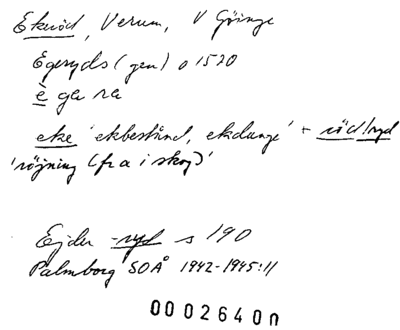 Ekeröd, Verum, V Göinge
Egeryds (gen) o 1520
è ga ra
eke 'ekbestånd, ekdunge' + röd/ryd
'röjning (fr a i skog)'
Ejder -ryd s 190
Palmborg SOÅ 1942-1945:11
00026400